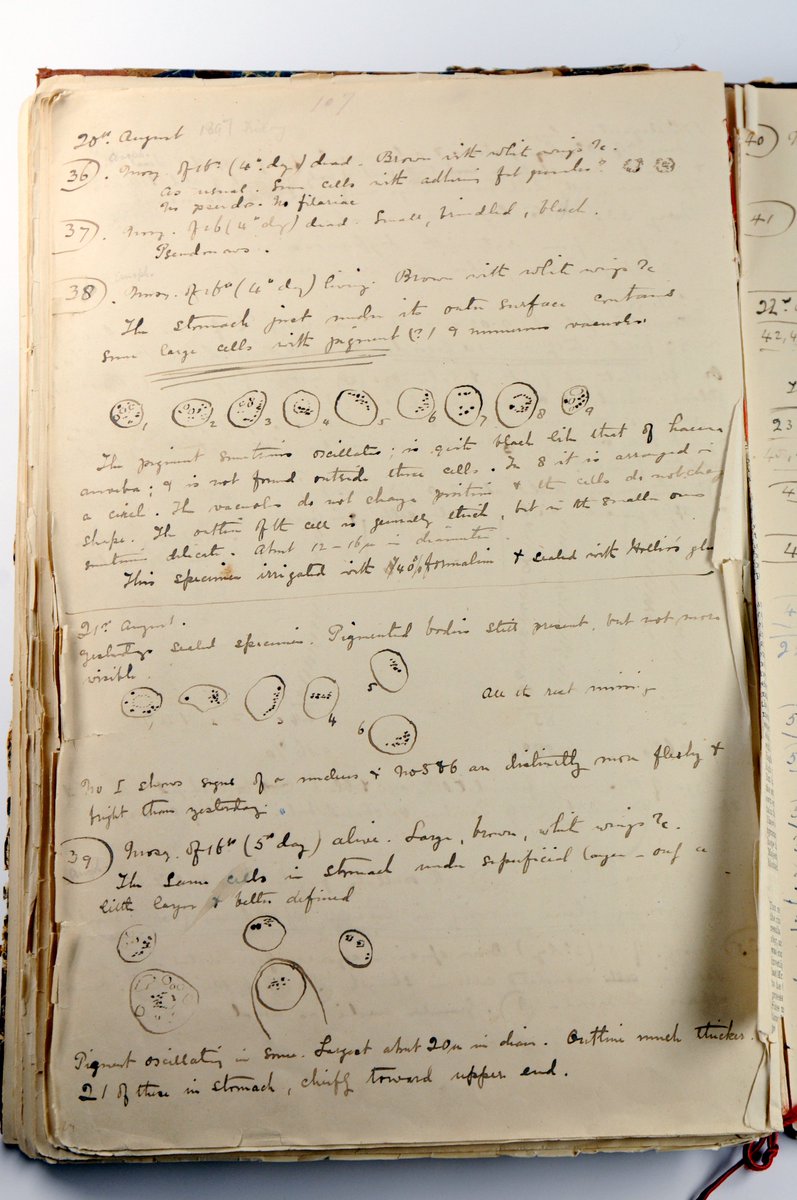 107
20th August 1897
36. Mosq. of 16th (4th day) dead. Brown with white wings &c.
As usual. Some cells with adhering fat granules
No pseudo. No filariae
37. Mosq. of 16 (4th day) dead. Small, brindled, black.
38. Mosq. of 16th (4th day) living. Brown with white wings &c
The stomach just under its outer surface contains
some large cells with pigment (?) & numerous vacuoles.
1 2 3 4 5 6 7 8 9
The pigment sometimes oscillates; is quite black like that of haem
amoeba; & is not found outside these cells. In 8 it is arranged in
a circle. The vacuoles do not change position & the cells do not chang
shape. The outline of the cell is generally thick, but in the smaller ones
sometimes delicate. About 12-16µ in diameter.
This specimen irrigated with 40% formalin & sealed with Hollis's glue
21st August.
Yesterdays sealed specimen. Pigmented bodies still present, but not more
visible.
5
3 4
All the rest missing
6
No 1 shows signs of a nucleus & No 5 & 6 are distinctly more fleshy &
bright than yesterday.
39 Mosq. of 16th (5th day) alive. Large, brown, white wings &c.
The same cells in stomach under superficial layer - only a
little larger & better defined
Pigment oscillating in some. Largest about 20µ in diam. Outline much thicker.
21 of these in stomach, chiefly toward upper end.
40
41